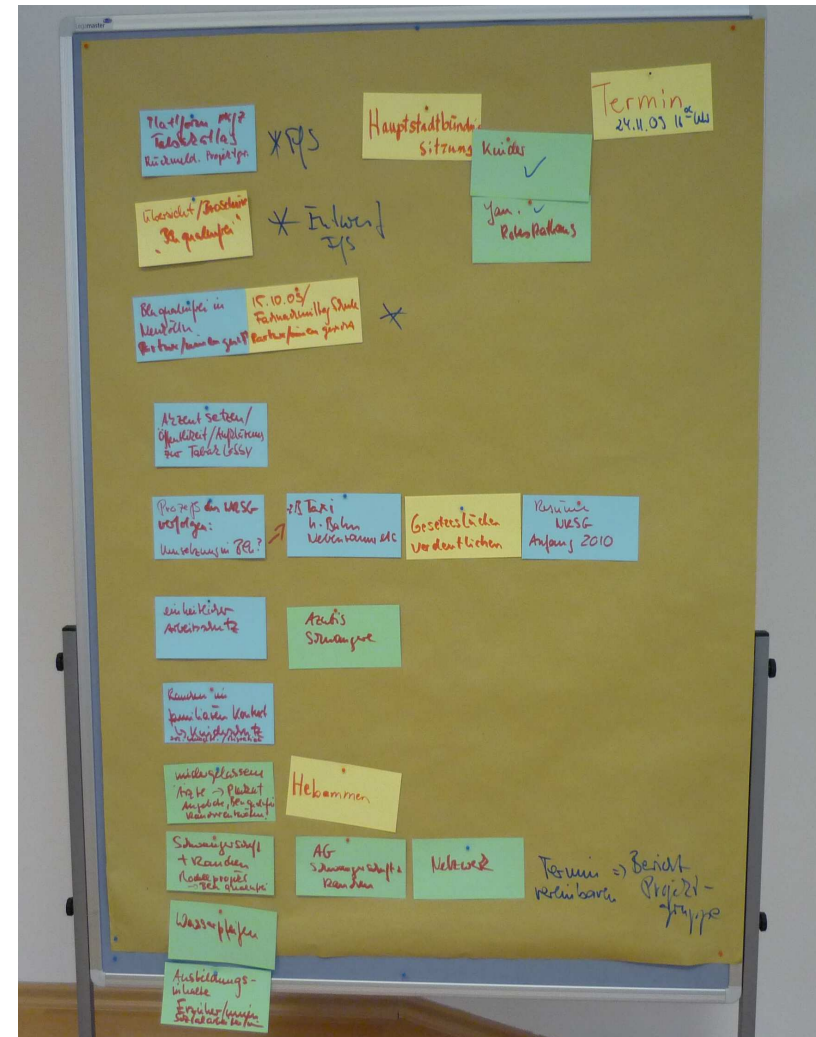 Plattform
Tabakatlas
Rückmeld. Projektgr.
Hauptstadtbündnis
Sitzung
Termin
24.11.09 16 Uhr
Kinder
Jan.
Rotes Rathaus
Übersicht/Broschüre
"Bln qualmfrei"
Entwurf
Bln qualmfrei in
Neukölln
Partner/innen
15.10.09/
Fachnachmittag Schule
Partner/innen
Akzent setzen/
Öffentlichkeit/Aufklärung
zur Tabaklobby
Prozess des NRSG
verfolgen:
Umsetzung in Bln?
z.B Taxi
u. Bahn
Nebenraum etc
Gesetzeslücken
verdeutlichen
Resümee
NRSG
Anfang 2010
einheitlicher
Arbeitsschutz
Azubis
Schwangere
Rauchen im
familiären Kontext
↳ Kinderschutz
niedergelassene
Ärzte → Plakat
Angebote, Bln qualmfrei
Hebammen
Schwangerschaft
+ Rauchen
Modellprojekt
→ Bln qualmfrei
AG
Schwangerschaft +
Rauchen
Netzwerk
Termin => Bericht
vereinbaren Projekt-
gruppe
Wasserpfeifen
Ausbildungs-
inhalte
Erzieher/innen
Sozialarbeiter/in